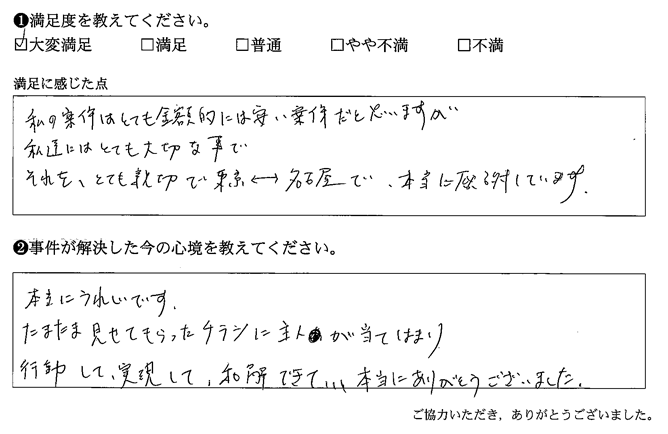 ❶満足度を教えてください。
☑大変満足 □満足 □普通 □やや不満 □不満
満足に感じた点
私の案件はとても金額的には安い案件だと思いますが
私達にはとても大切な事で
それを、とても親切で東京⟷名古屋で、本当に感謝しています。
❷事件が解決した今の心境を教えてください。
本当にうれしいです。
たまたま見せてもらったチラシに主人が当てはまり
行動して、実現して、和解できて、、、本当にありがとうございました。
ご協力いただき，ありがとうございました。